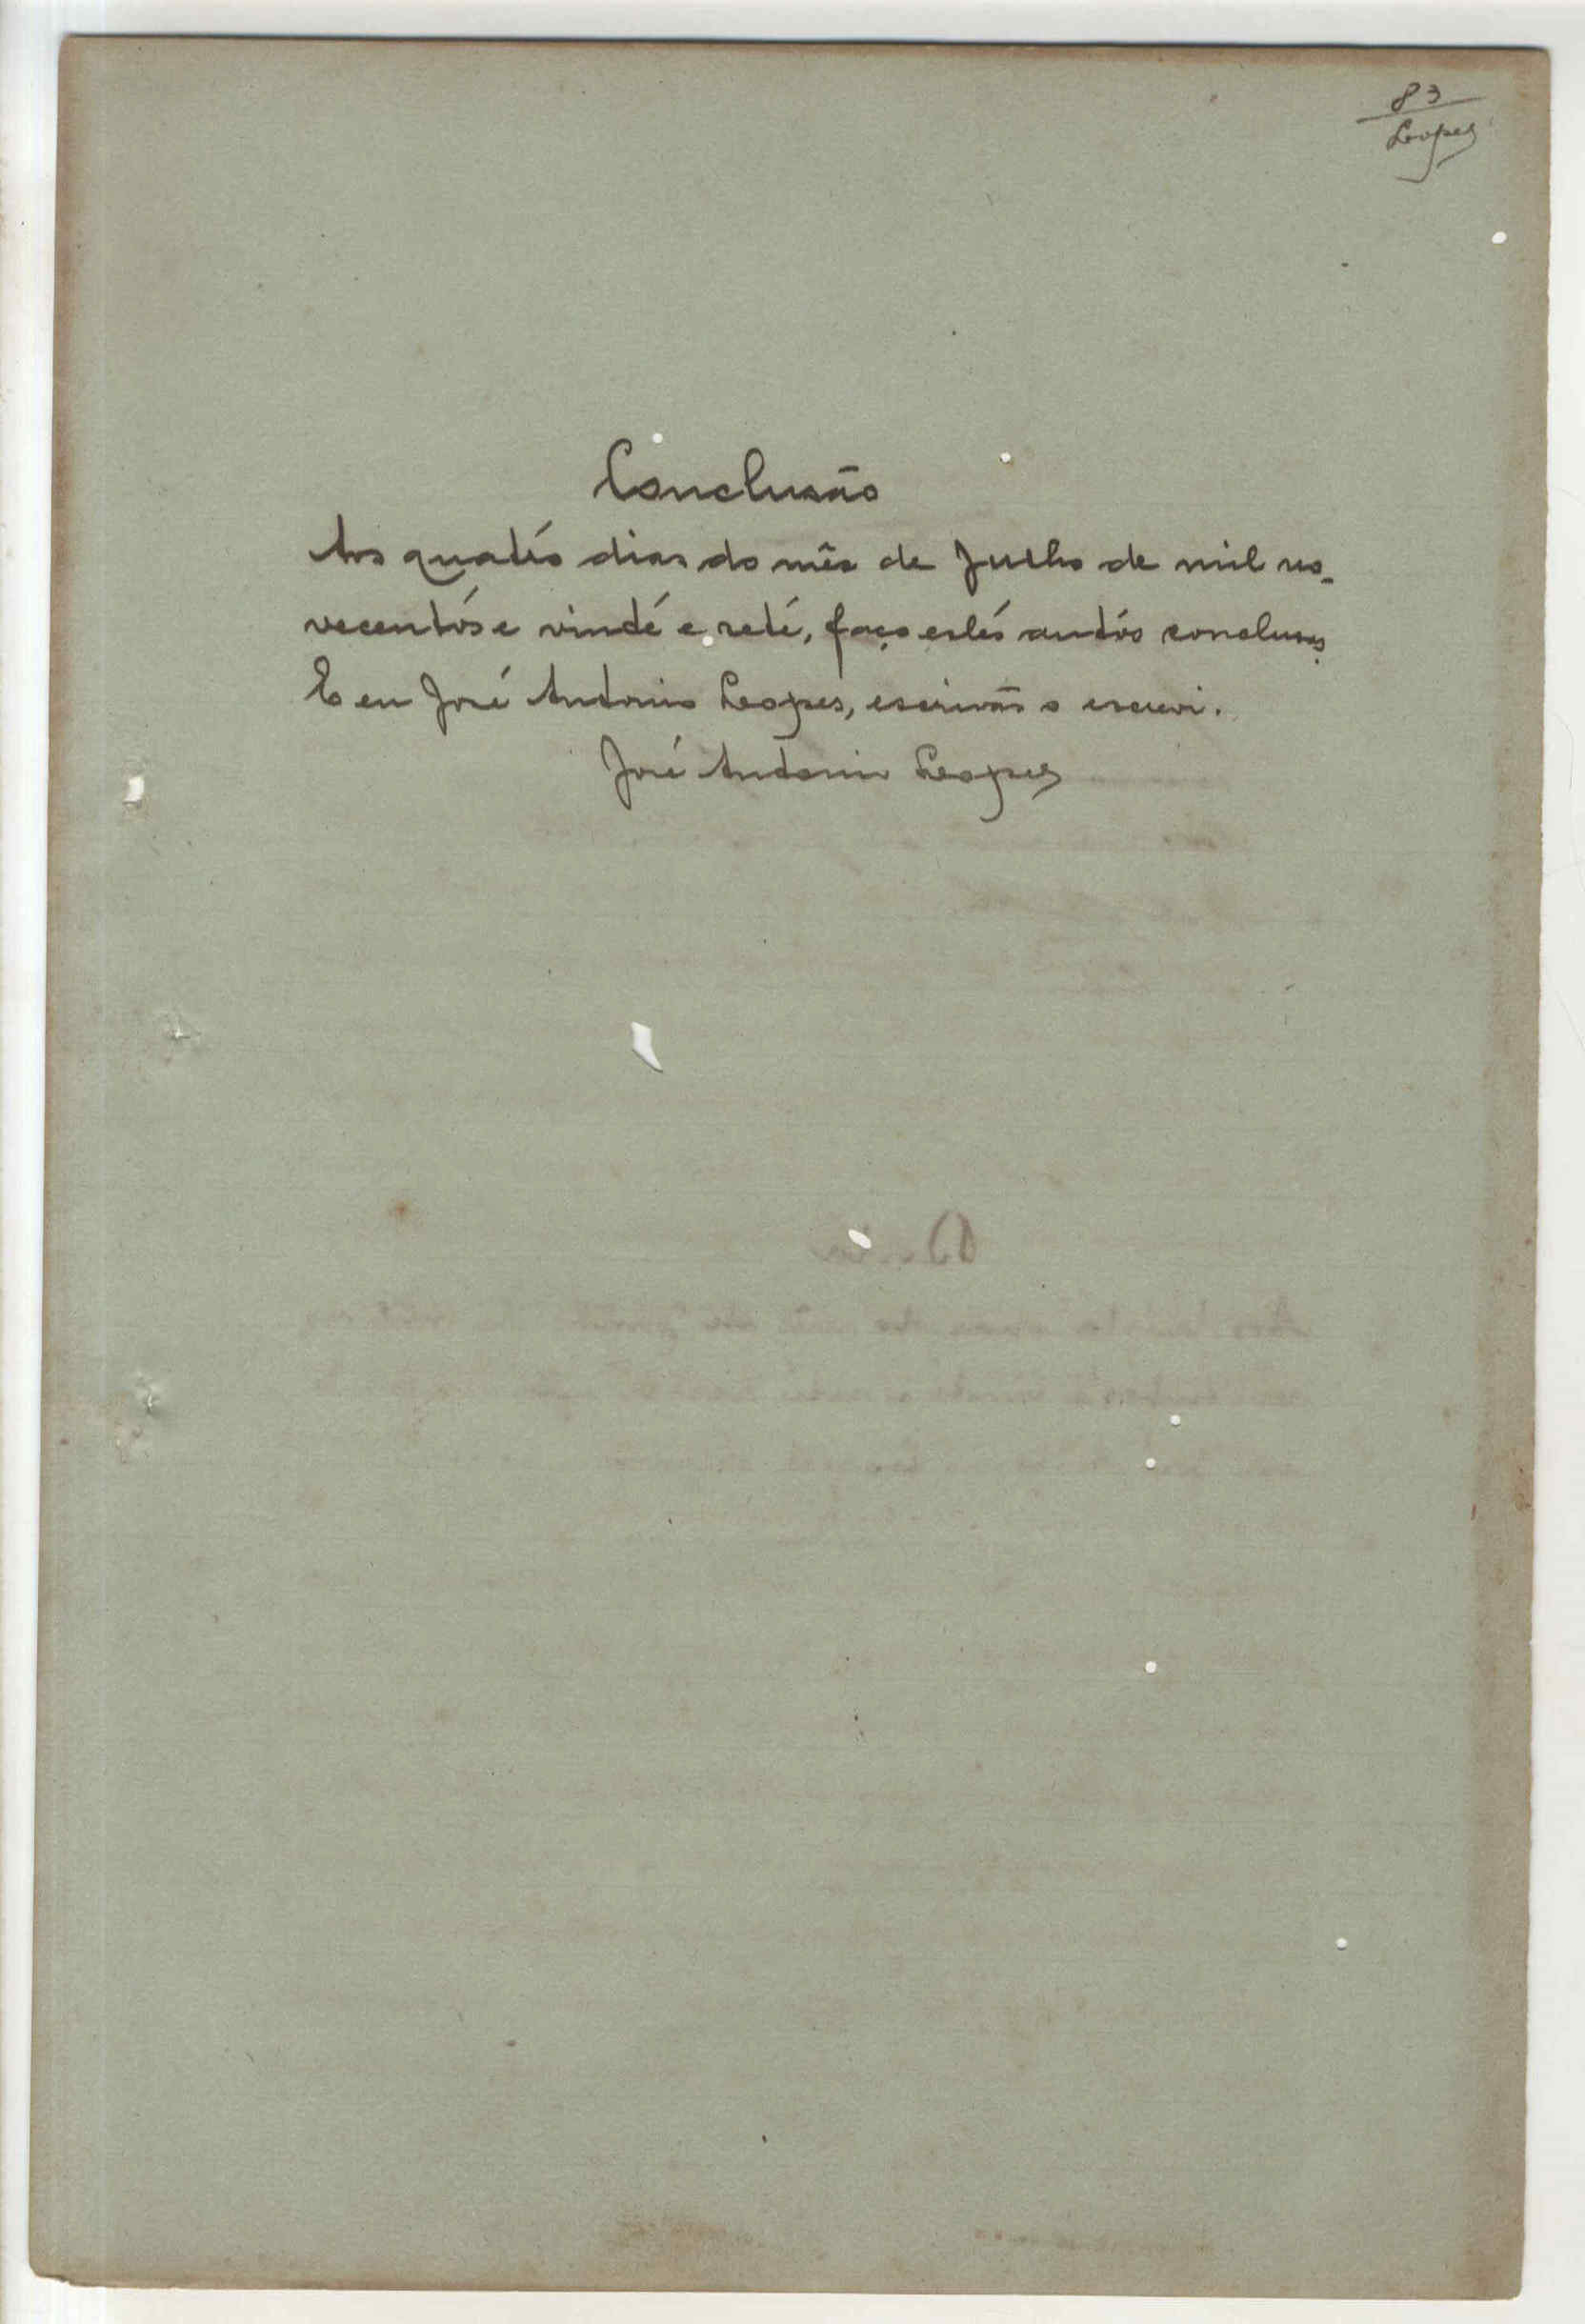 83
Lopes
Conclusão
Aos quatro dias do mês de Julho de mil no-
vecentos e vinte e sete, faço estes autos conclusos.
E eu José Antonio Lopes, escrivão o escrevi.
José Antonio Lopes